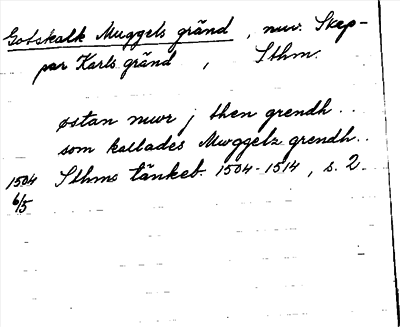 Gotskalk Muggels gränd, nuv. Skep-
par Karls gränd, Sthm.
østan mwr j then grendh ..
som kallades Mwggelz grendh ..
1504 Sthms tänkeb. 1504-1514, s. 2.
6/5